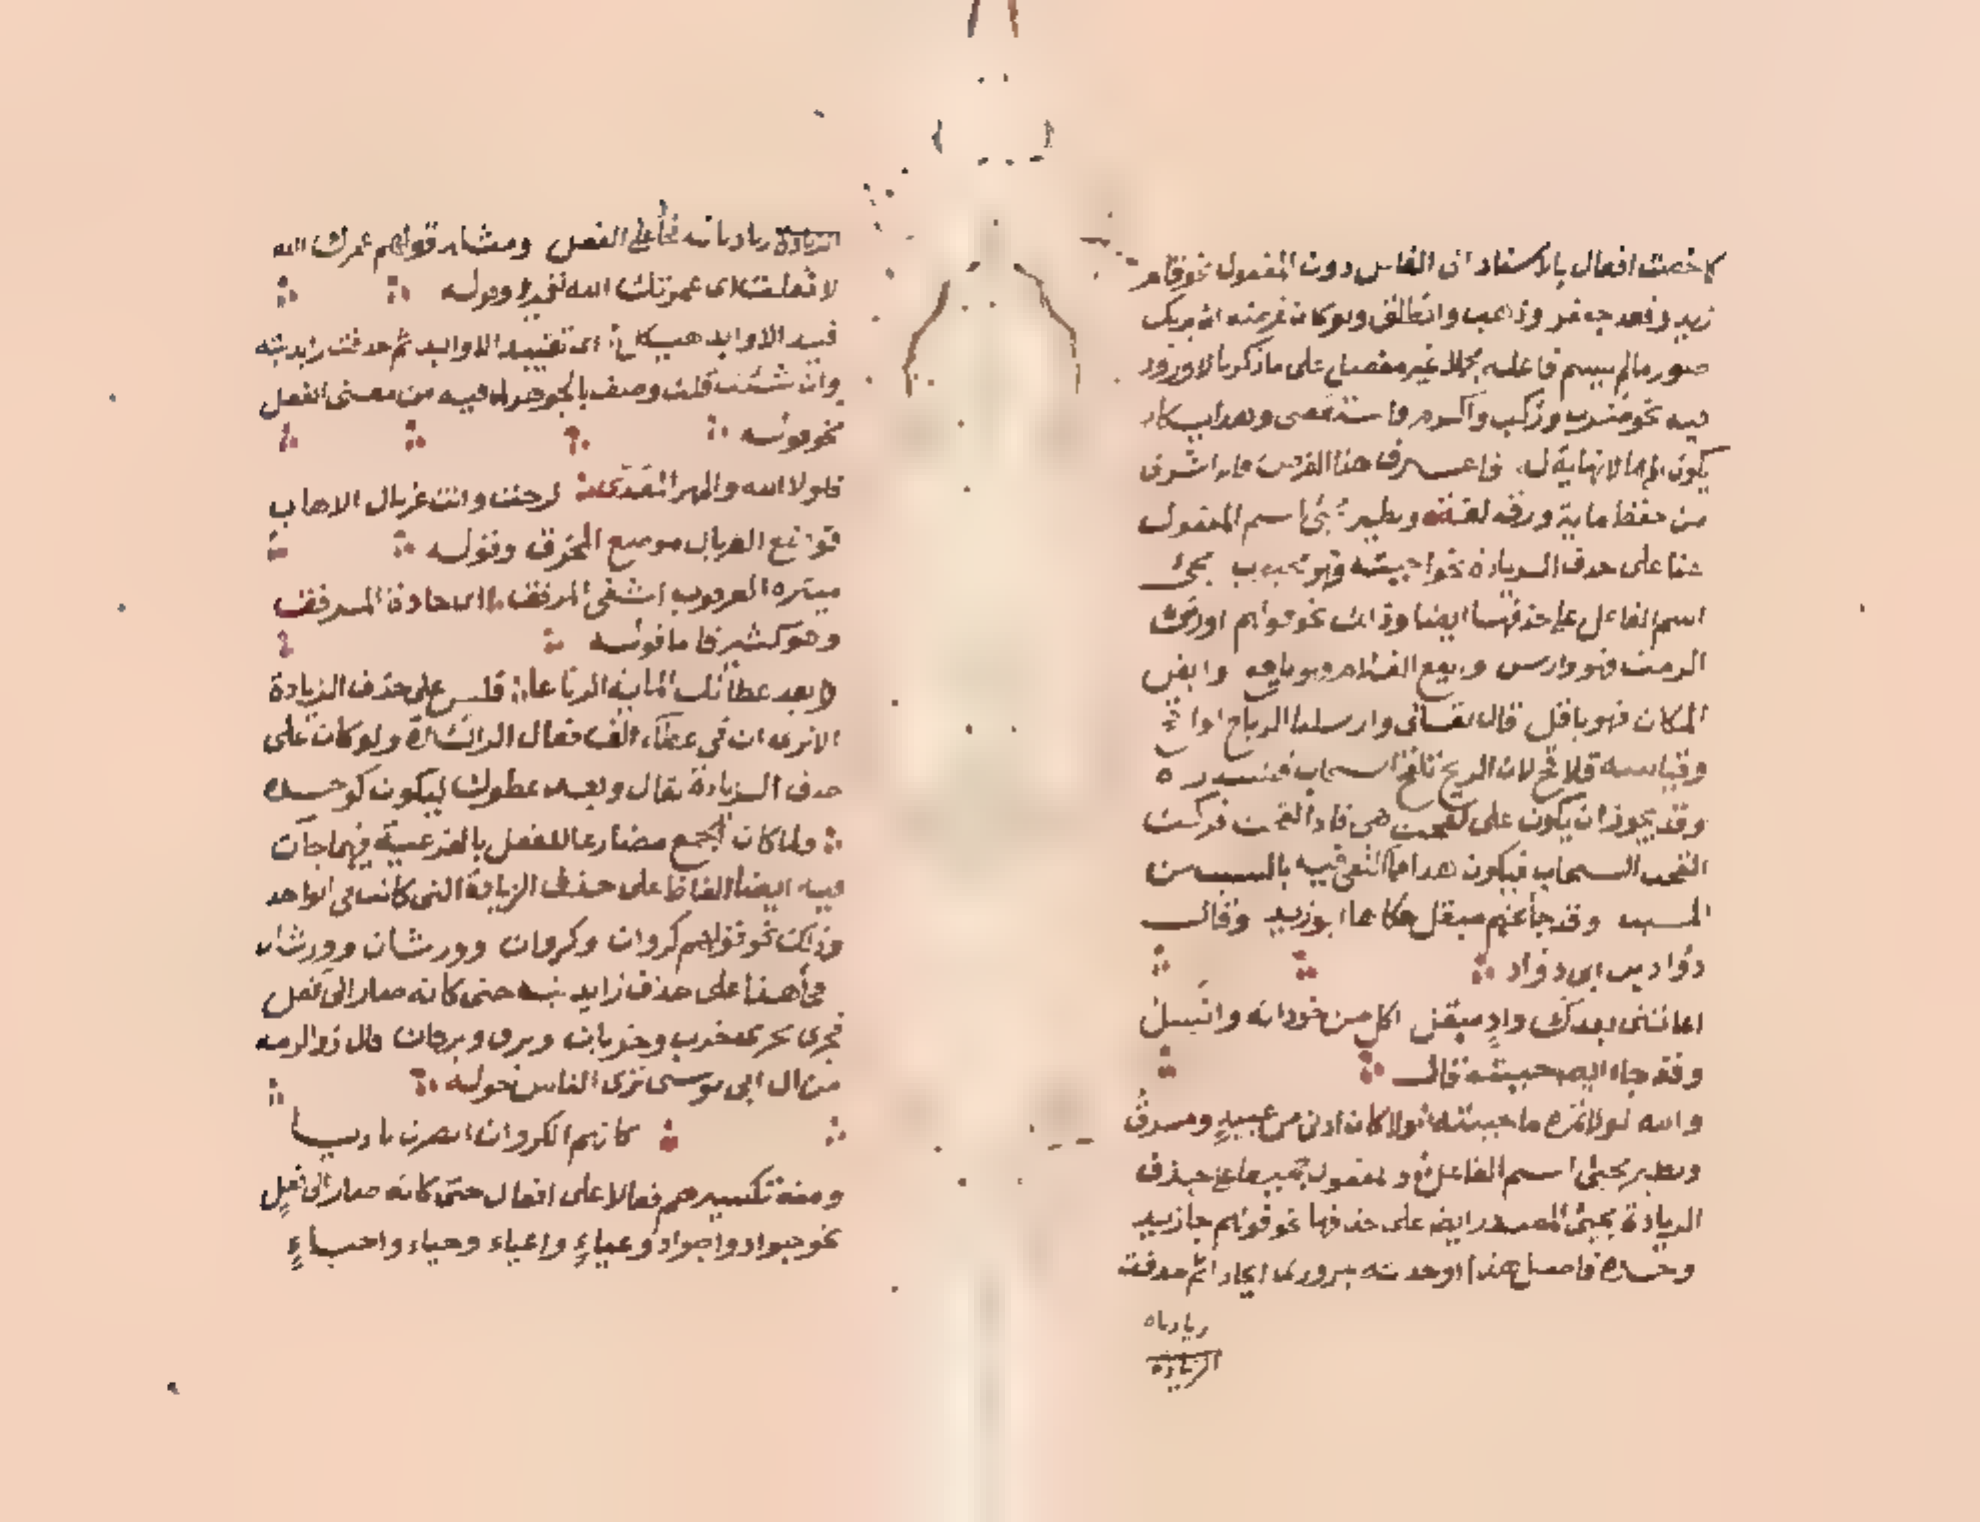 كما خصت افعال بالاسناد الى الفاعل دون المفعول نحو قام
زيد وقعد جعفر وذهب وانطلق ولو كان غرضنه ان يريك
صور مالم يسم فاعله مجملا غير مفصل على ما ذكرنا لاورد
فيه نحو ضرب وركب واكرم واستقصى وهذا يكاد
يكون الى ما لا نهاية له فاعرف هذا الغرض فانه اشرف
من حفظ ماية ورقه لغة ونظير مجئ اسم المفعول
هنا على حذف الزيادة نحو احببته فهو محبوب مجئ
اسم الفاعل على حذفها ايضا وذلك نحو قولهم اورس
الرمث فهو وارس وايفع الغلام وهو يافع وابقل
المكان فهو باقل قال تعالى وارسلنا الرياح لواقح
وقياسه ملاقح لان الريح تلقح السحاب فتستدره
وقد يجوز ان يكون على لقحت هى فاذا القحت فزكت
القحت السحاب فيكون هذا مما اكتفى فيه بالسبب من
المسبب وقد جاء عنهم مبقل حكاها ابو زيد وقال
دؤاد بن ابى دؤاد
اعاشنى بعدك واد مبقل اكل من حوذانه وانسل
وقد جاء ايضا حببته قال
والله لولا تمره ما حببته ولا كان ادنى من عبيد ومشرق
ونظير مجئ اسم الفاعل والمفعول جميعا على حذف
الزيادة مجئ المصدر ايضا على حذفها نحو قولهم جا زيد
وحده فاصل هذا اوحدته بمرورى ايحادا ثم حذفت
زيادتاه
الزيادة
زيادتاه فجاء على الفعل ومثله قولهم عمرك الله
الا فعلت اى عمرتك الله تعميرا وقوله
قيد الاوابد هيكل اى تقييد الاوابد ثم حذفت زايدتيه
وان شئت قلت وصف بالجوهر لما فيه من معنى الفعل
نحو قوله
فلولا الله والمهر المفدى لرحت وانت غربال الاهاب
فوضع الغربال موضع المخرق وقوله
ميبرة العرقوب اشفى المرفق اى حادة المرفق
وهو كثير فاما قوله
وبعد عطائك الماية الرتاعا فليس على حذف الزيادة
الا ترى ان فى عطاء الف فعال الزائدة ولو كان على
حذف الزيادة لقال وبعد عطوك ليكون كوحده
ولما كان الجمع مضارعا للفعل بالفرعية فيهما جات
فيه ايضا الفاظ على حذف الزيادة التى كانت فى الواحد
وذلك نحو قولهم كروان وكروان وورشان وورشان
فجاء هذا على حذف زايدتيه حتى كانه صار الى فعل
فجرى مجرى خرب وخربان وبرق وبرقان قال ذو الرمه
من ال ابى موسى ترى الناس حوله
كانهم الكروان ابصرن بازيا
ومنه تكسيرهم فعالا على افعال حتى كانه صار الى فعل
نحو جواد واجواد وعياء واعياء وحياء واحياء